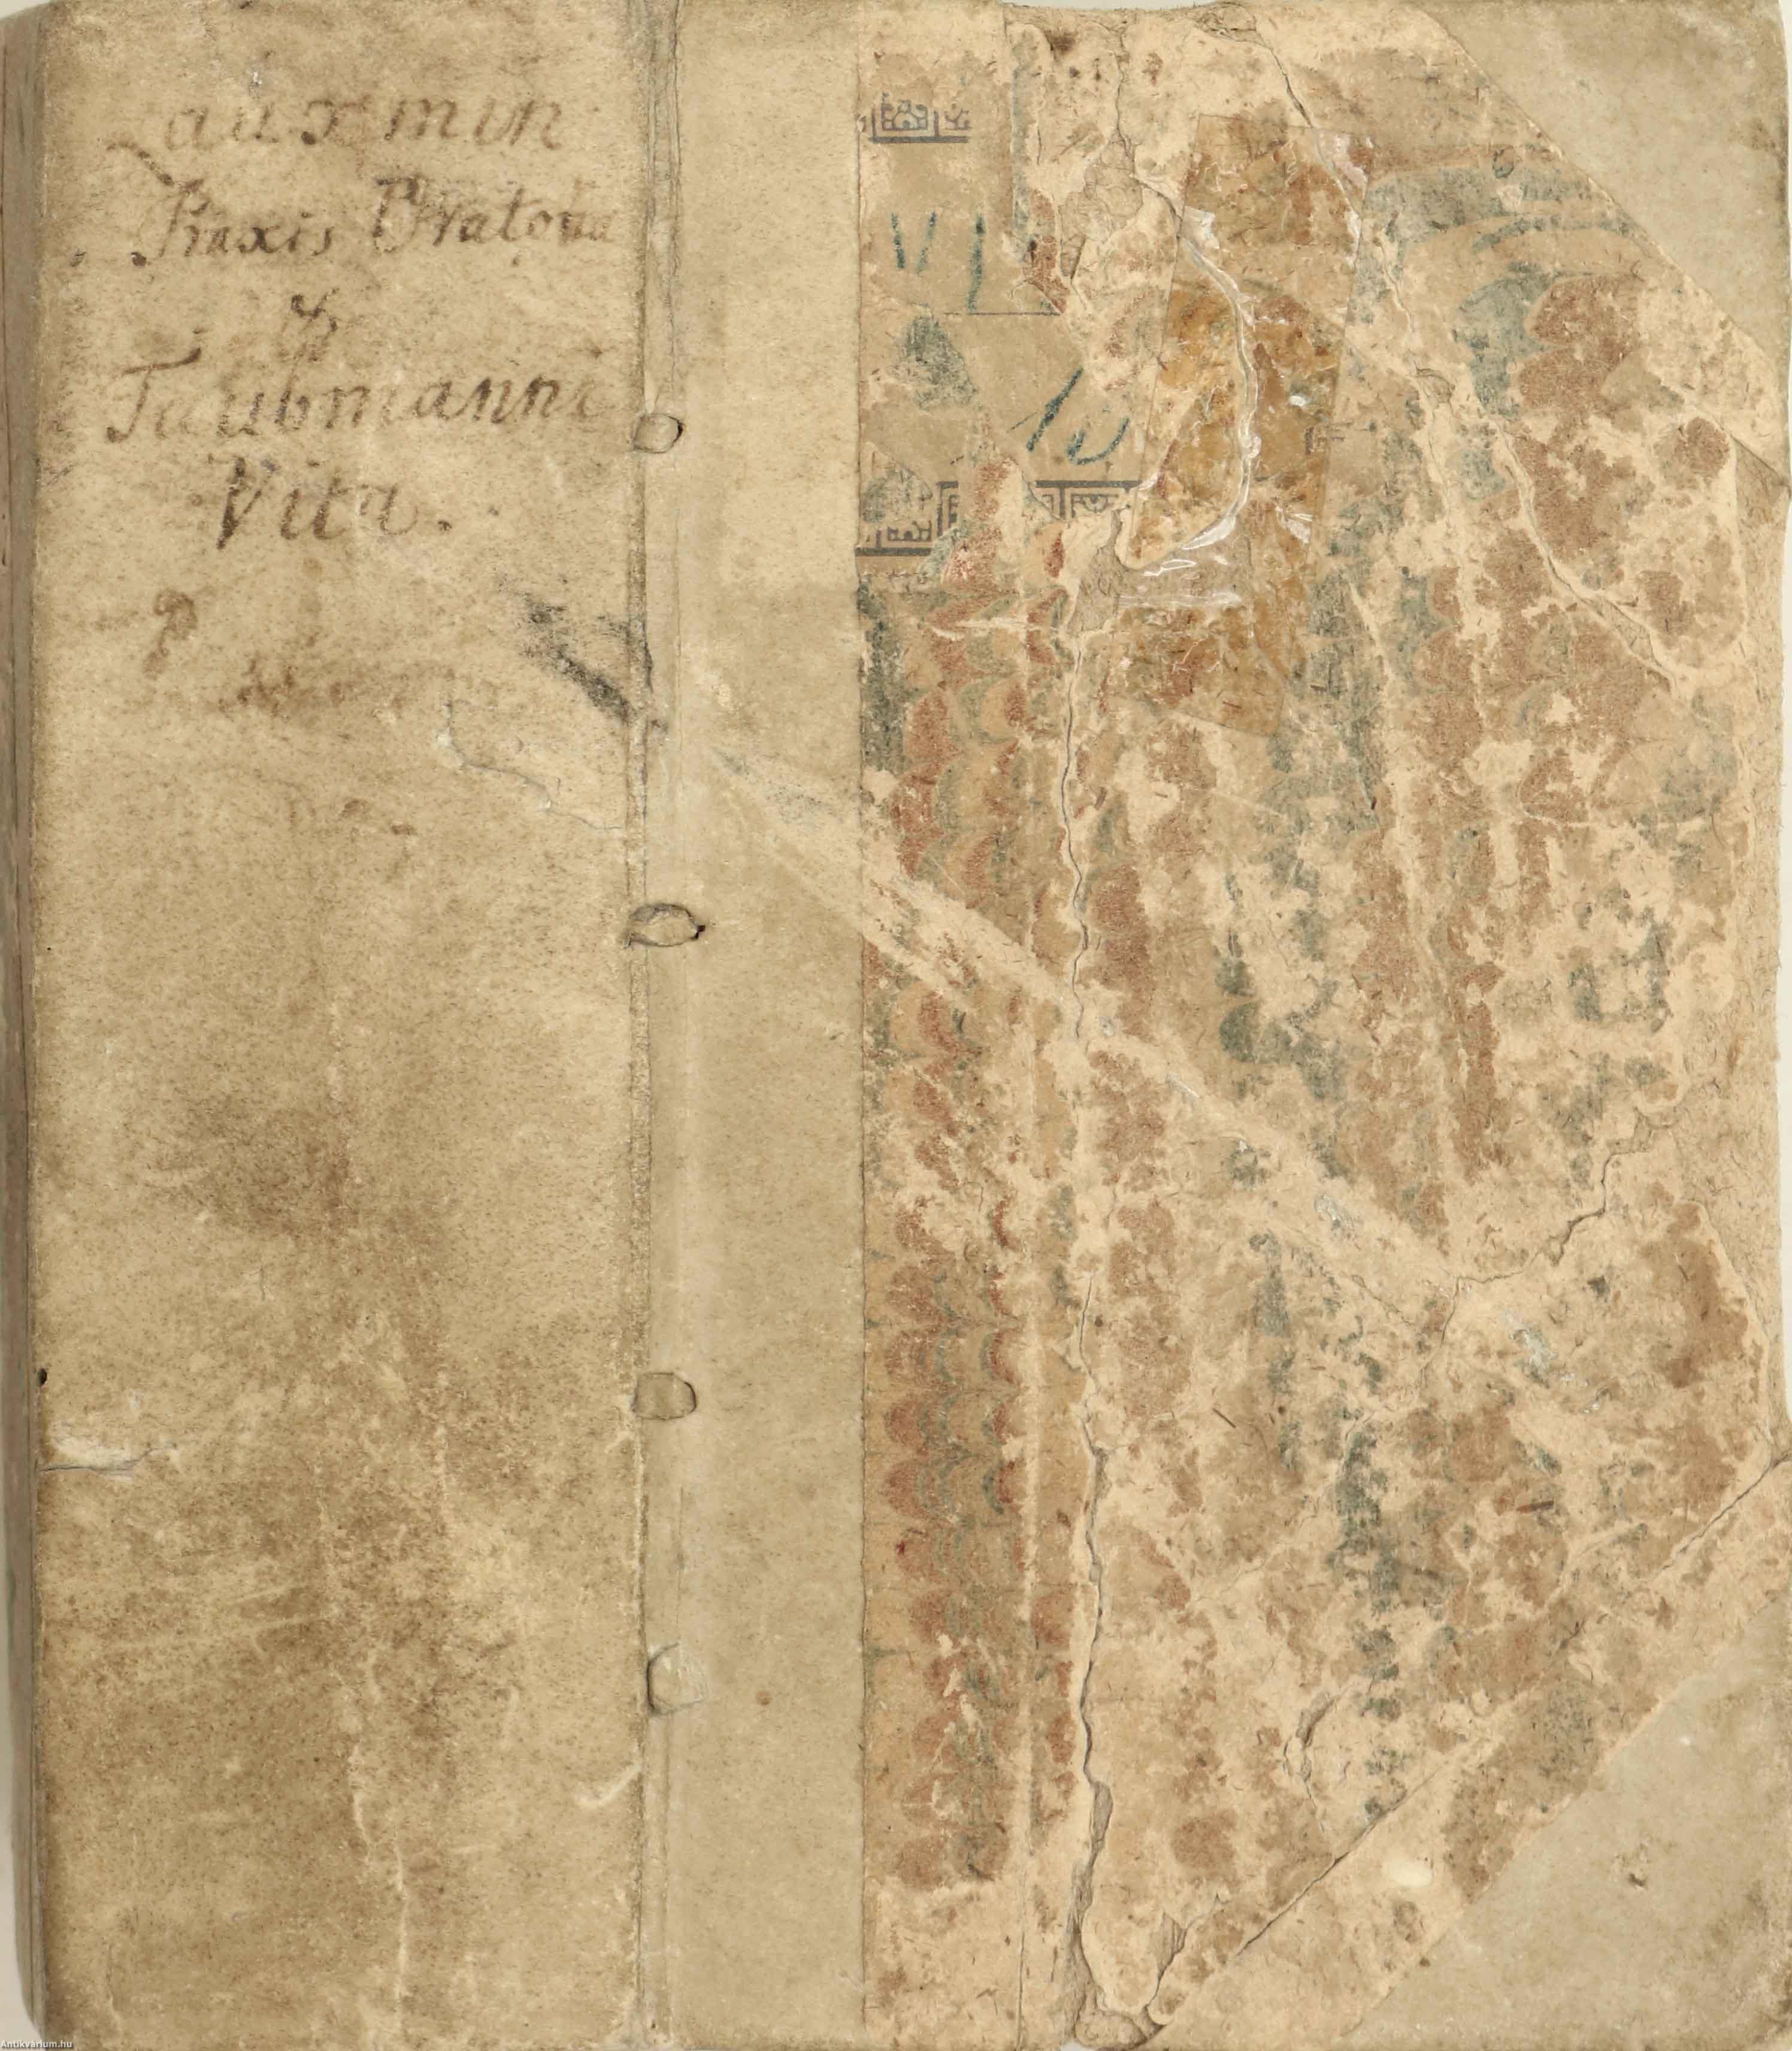 Lauxmin
Praxis Oratoria
&
Taubmanni
Vita.
VI
10
Antikvarium.hu